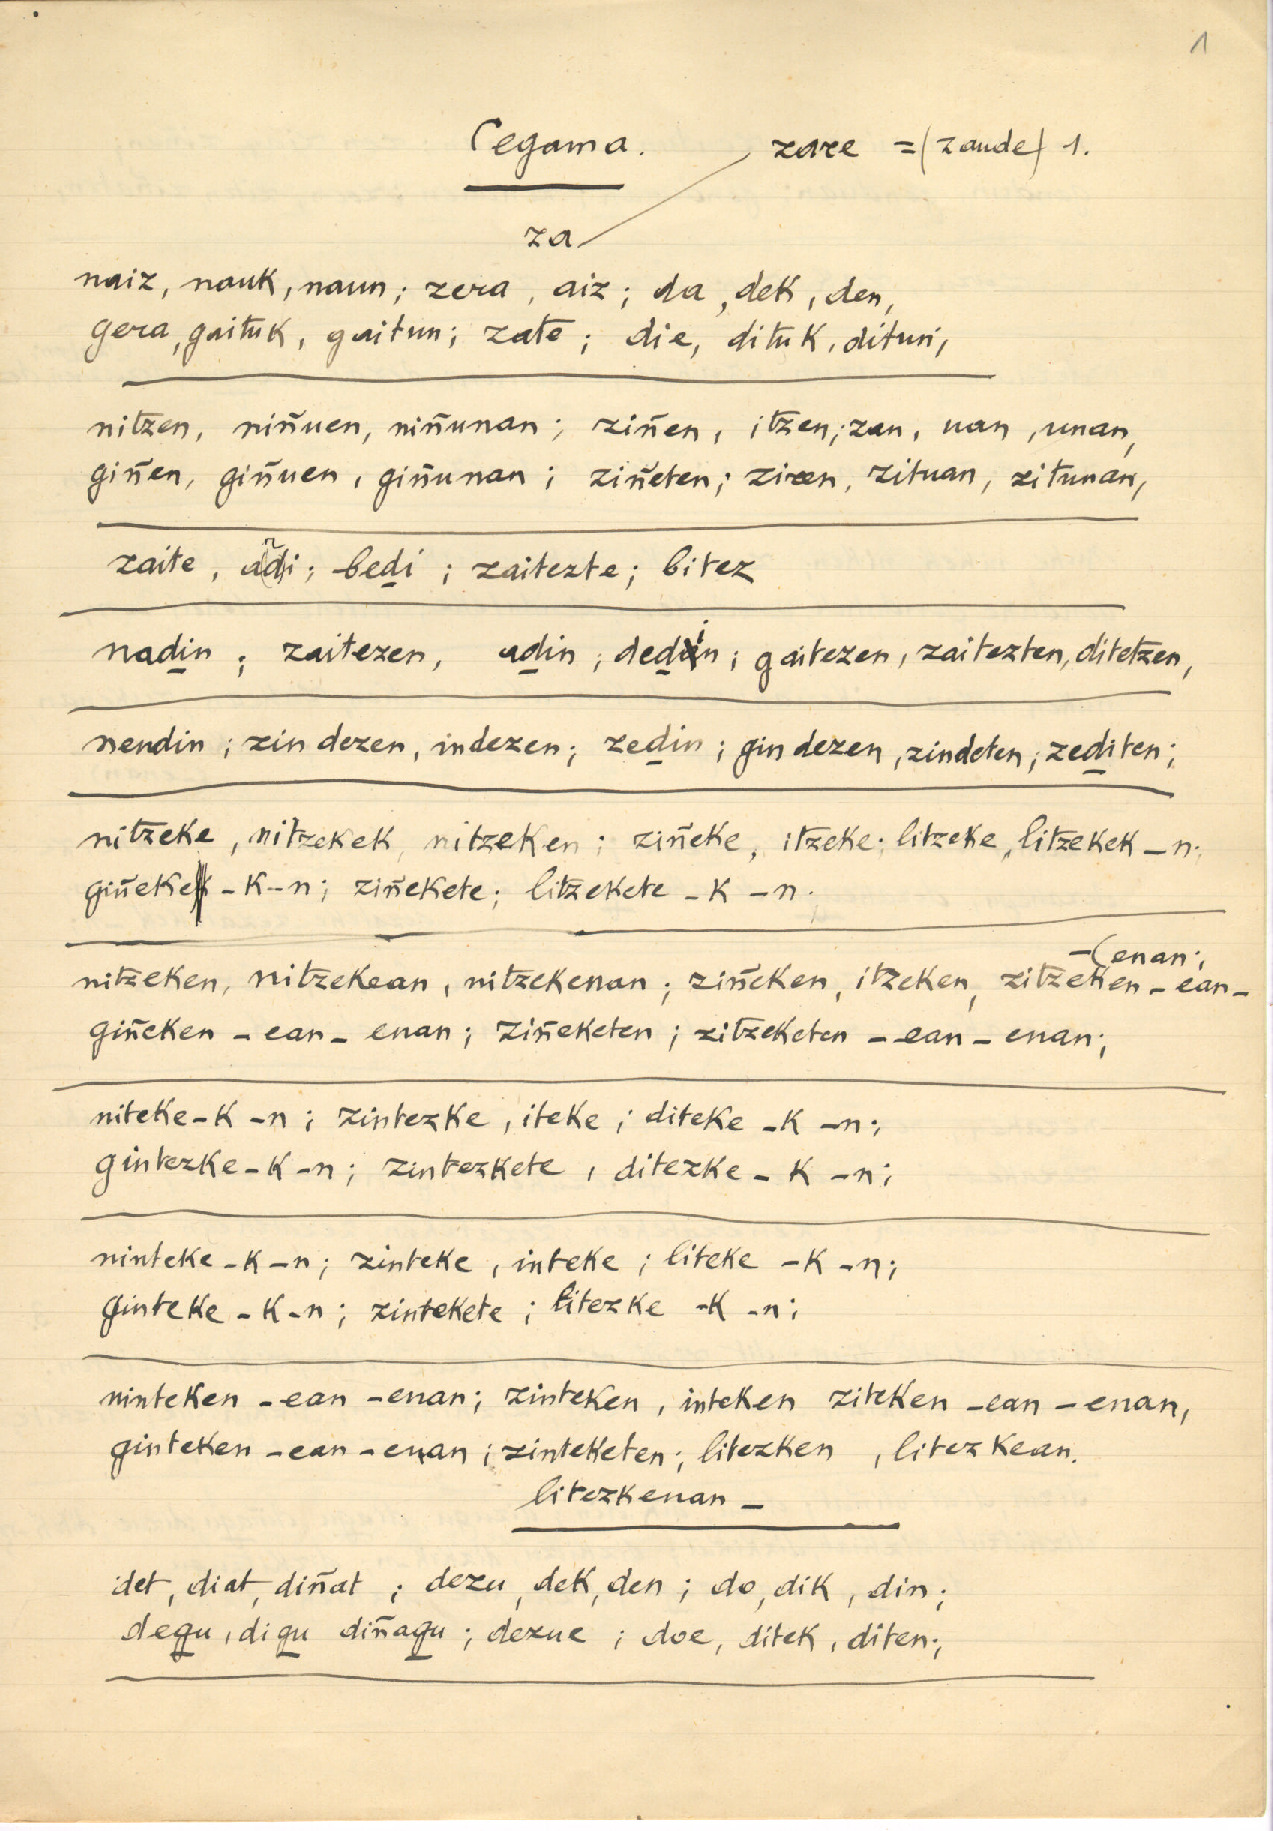 1
Cegama. zare = (zaude) 1.
za
naiz, nauk, naun; zera, aiz; da, dek, den,
gera, gaituk, gaitun; zate; die, dituk, ditun,
nitzen, niñuen, niñunan; ziñen, itzen; zan, uan, unan,
giñen, giñuen, giñunan; ziñeten; ziren, zituan, zitunan,
zaite, adi; bedi; zaitezte; bitez
nadin; zaitezen, adin; dedin; gaitezen, zaitezten, ditetzen,
nendin; zindezen, indezen; zedin; gindezen, zindeten; zediten;
nitzeke, nitzekek, nitzeken; ziñeke, itzeke; litzeke, litzekek - n;
giñeke - k - n; ziñekete; litzekete - k - n;
-(enan;
nitzeken, nitzekean, nitzekenan; ziñeken, itzeken, zitzeken - ean -
giñeken - ean - enan; ziñeketen; zitzeketen - ean - enan;
niteke - k - n; zintezke, iteke; diteke - k - n;
gintezke - k - n; zintezkete, ditezke - k - n;
ninteke - k - n; zinteke, inteke; liteke - k - n;
ginteke - k - n; zintekete; litezke - k - n;
ninteken - ean - enan; zinteken, inteken ziteken - ean - enan,
ginteken - ean - enan; zinteketen; litezken, litezkean.
litezkenan -
det, diat, diñat; dezu, dek, den; do, dik, din;
degu, digu diñagu; dezue; doe, ditek, diten;